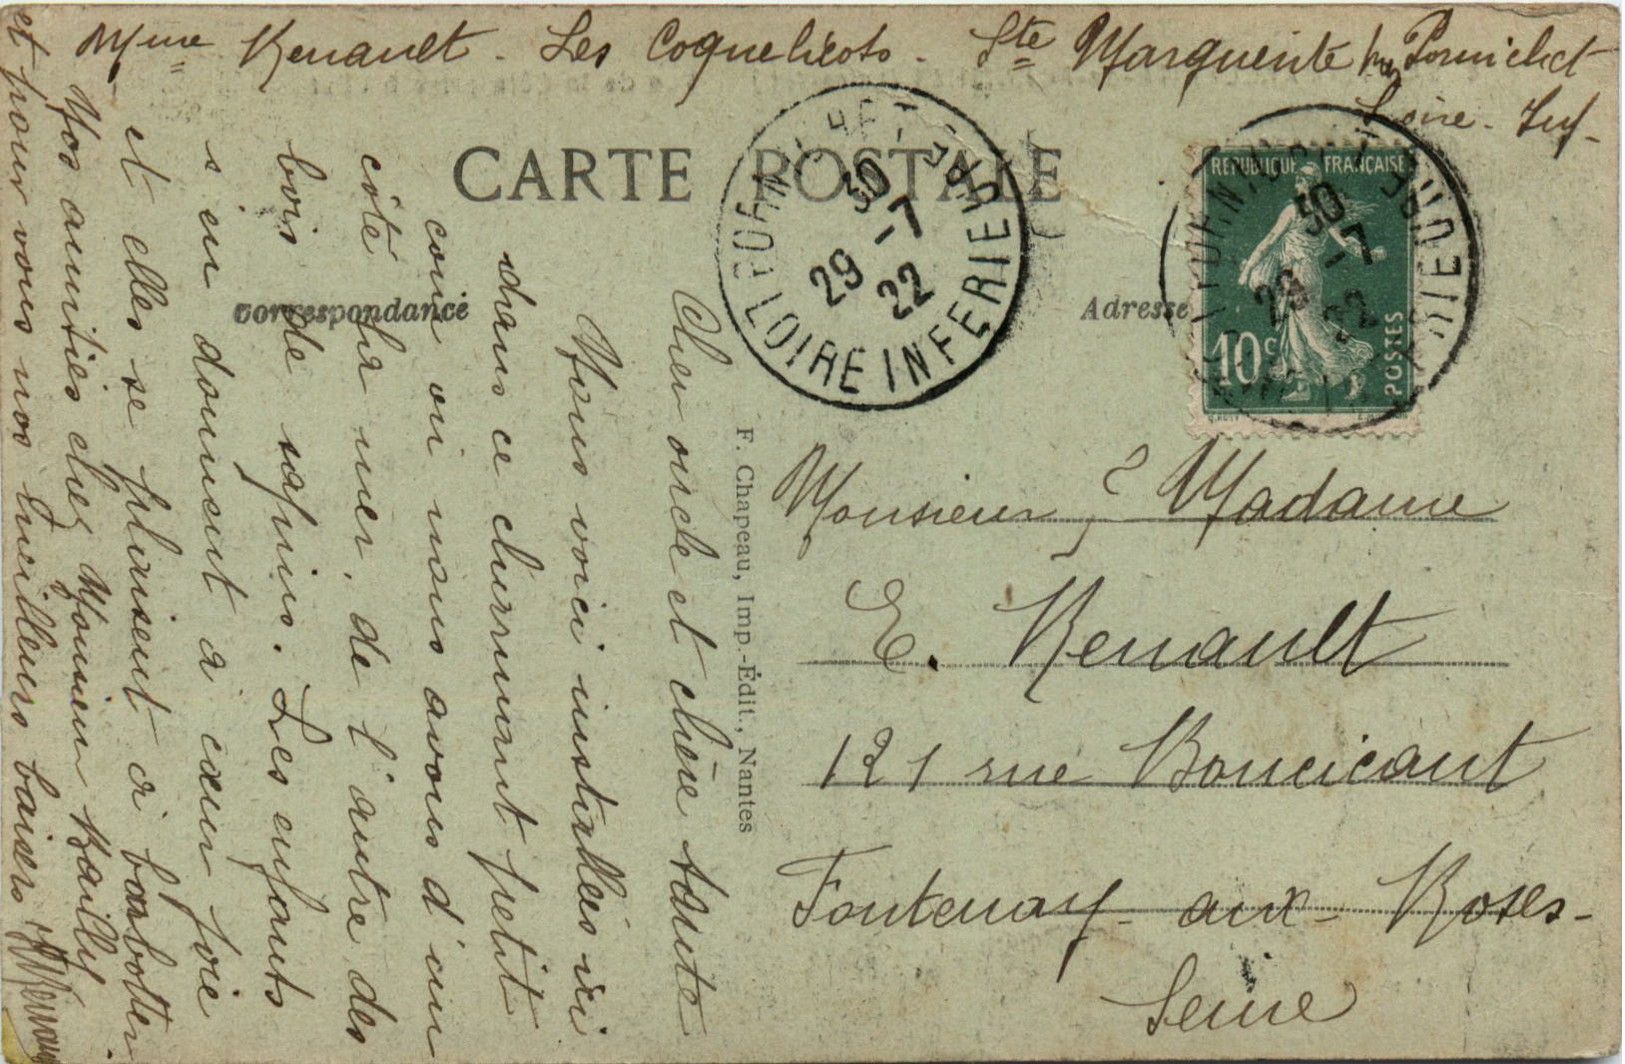 Mme Renault - Les Coquelicots - Ste Marguerite près Pornichet
Loire - Inf -
CARTE POSTALE
Correspondance
Adresse
30
29 -7
22
LOIRE INFERIEURE
REPUBLIQUE FRANÇAISE
10c
POSTES
30
29 -7
22
F. Chapeau, Imp.-Édit., Nantes
Monsieur & Madame
E. Renault
121 rue Boucicaut
Fontenay - aux - Roses -
Seine
Cher oncle et chère tante
Nous voici installés ici
dans ce charmant petit
coin où nous avons d'un
côté la mer, de l'autre des
bois de sapins. Les enfants
s'en donnent à cœur joie
et elles se plaisent à barbotter.
Vos amitiés chez Monsieur Bailly
et pour vous nos meilleurs baisers